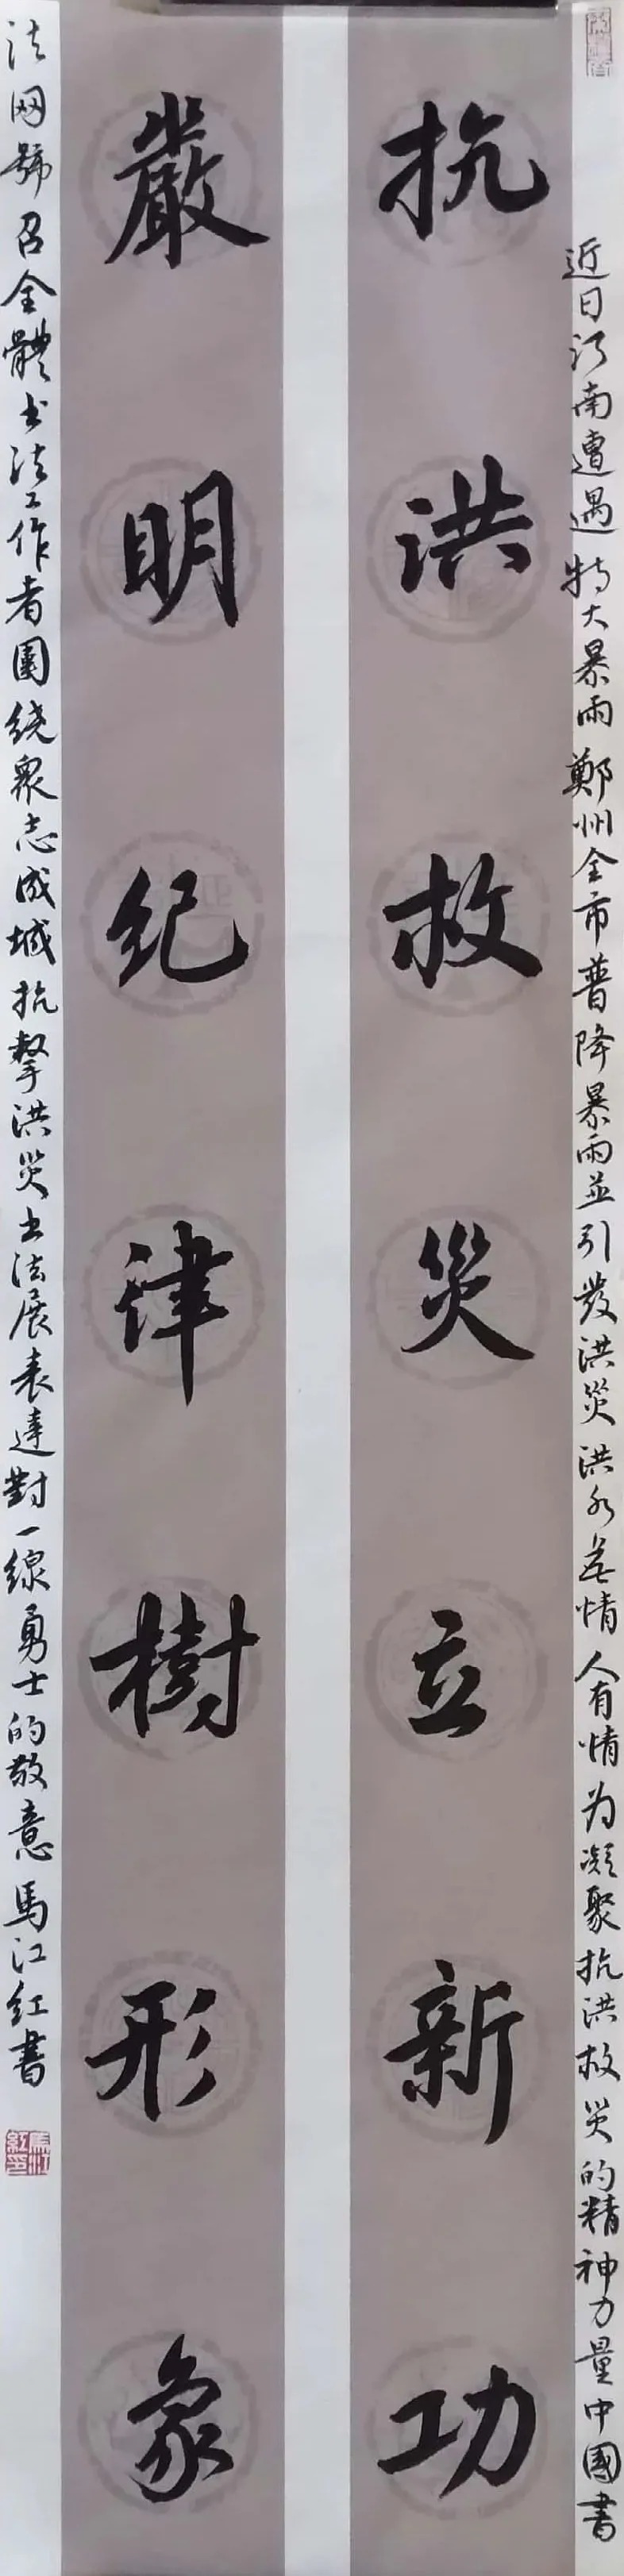 近日河南遭遇特大暴雨鄭州全市普降暴雨並引發洪災洪水無情人有情为凝聚抗洪救災的精神力量中國書
抗洪救災立新功
嚴明纪律樹形象
法网號召全體书法工作者圍绕衆志成城抗擊洪災书法展表達對一線勇士的敬意馬江红書